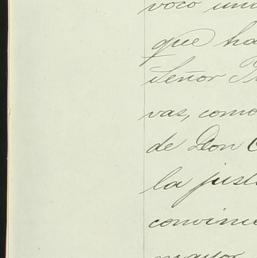 voco una
que ha
Señor Pr
vas, como
de Don C
la just
convinie
mayor